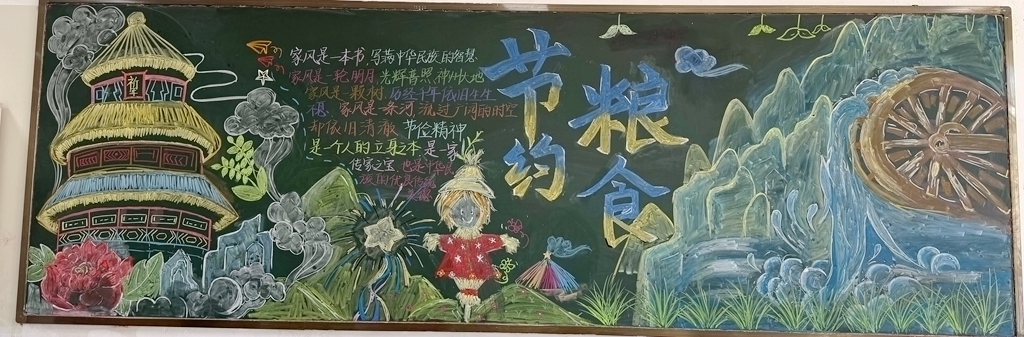 家风是一本书,写满中华民族的智慧
家风是一轮明月,光辉普照神州大地
家风是一颗树,历经千年风雨生生
不息,家风是一条河,流过广阔的时空
却依旧清澈,节俭精神
是一个人的立身之本是一家
传家之宝,也是中华民
族的优良传统
美德
节约
粮食